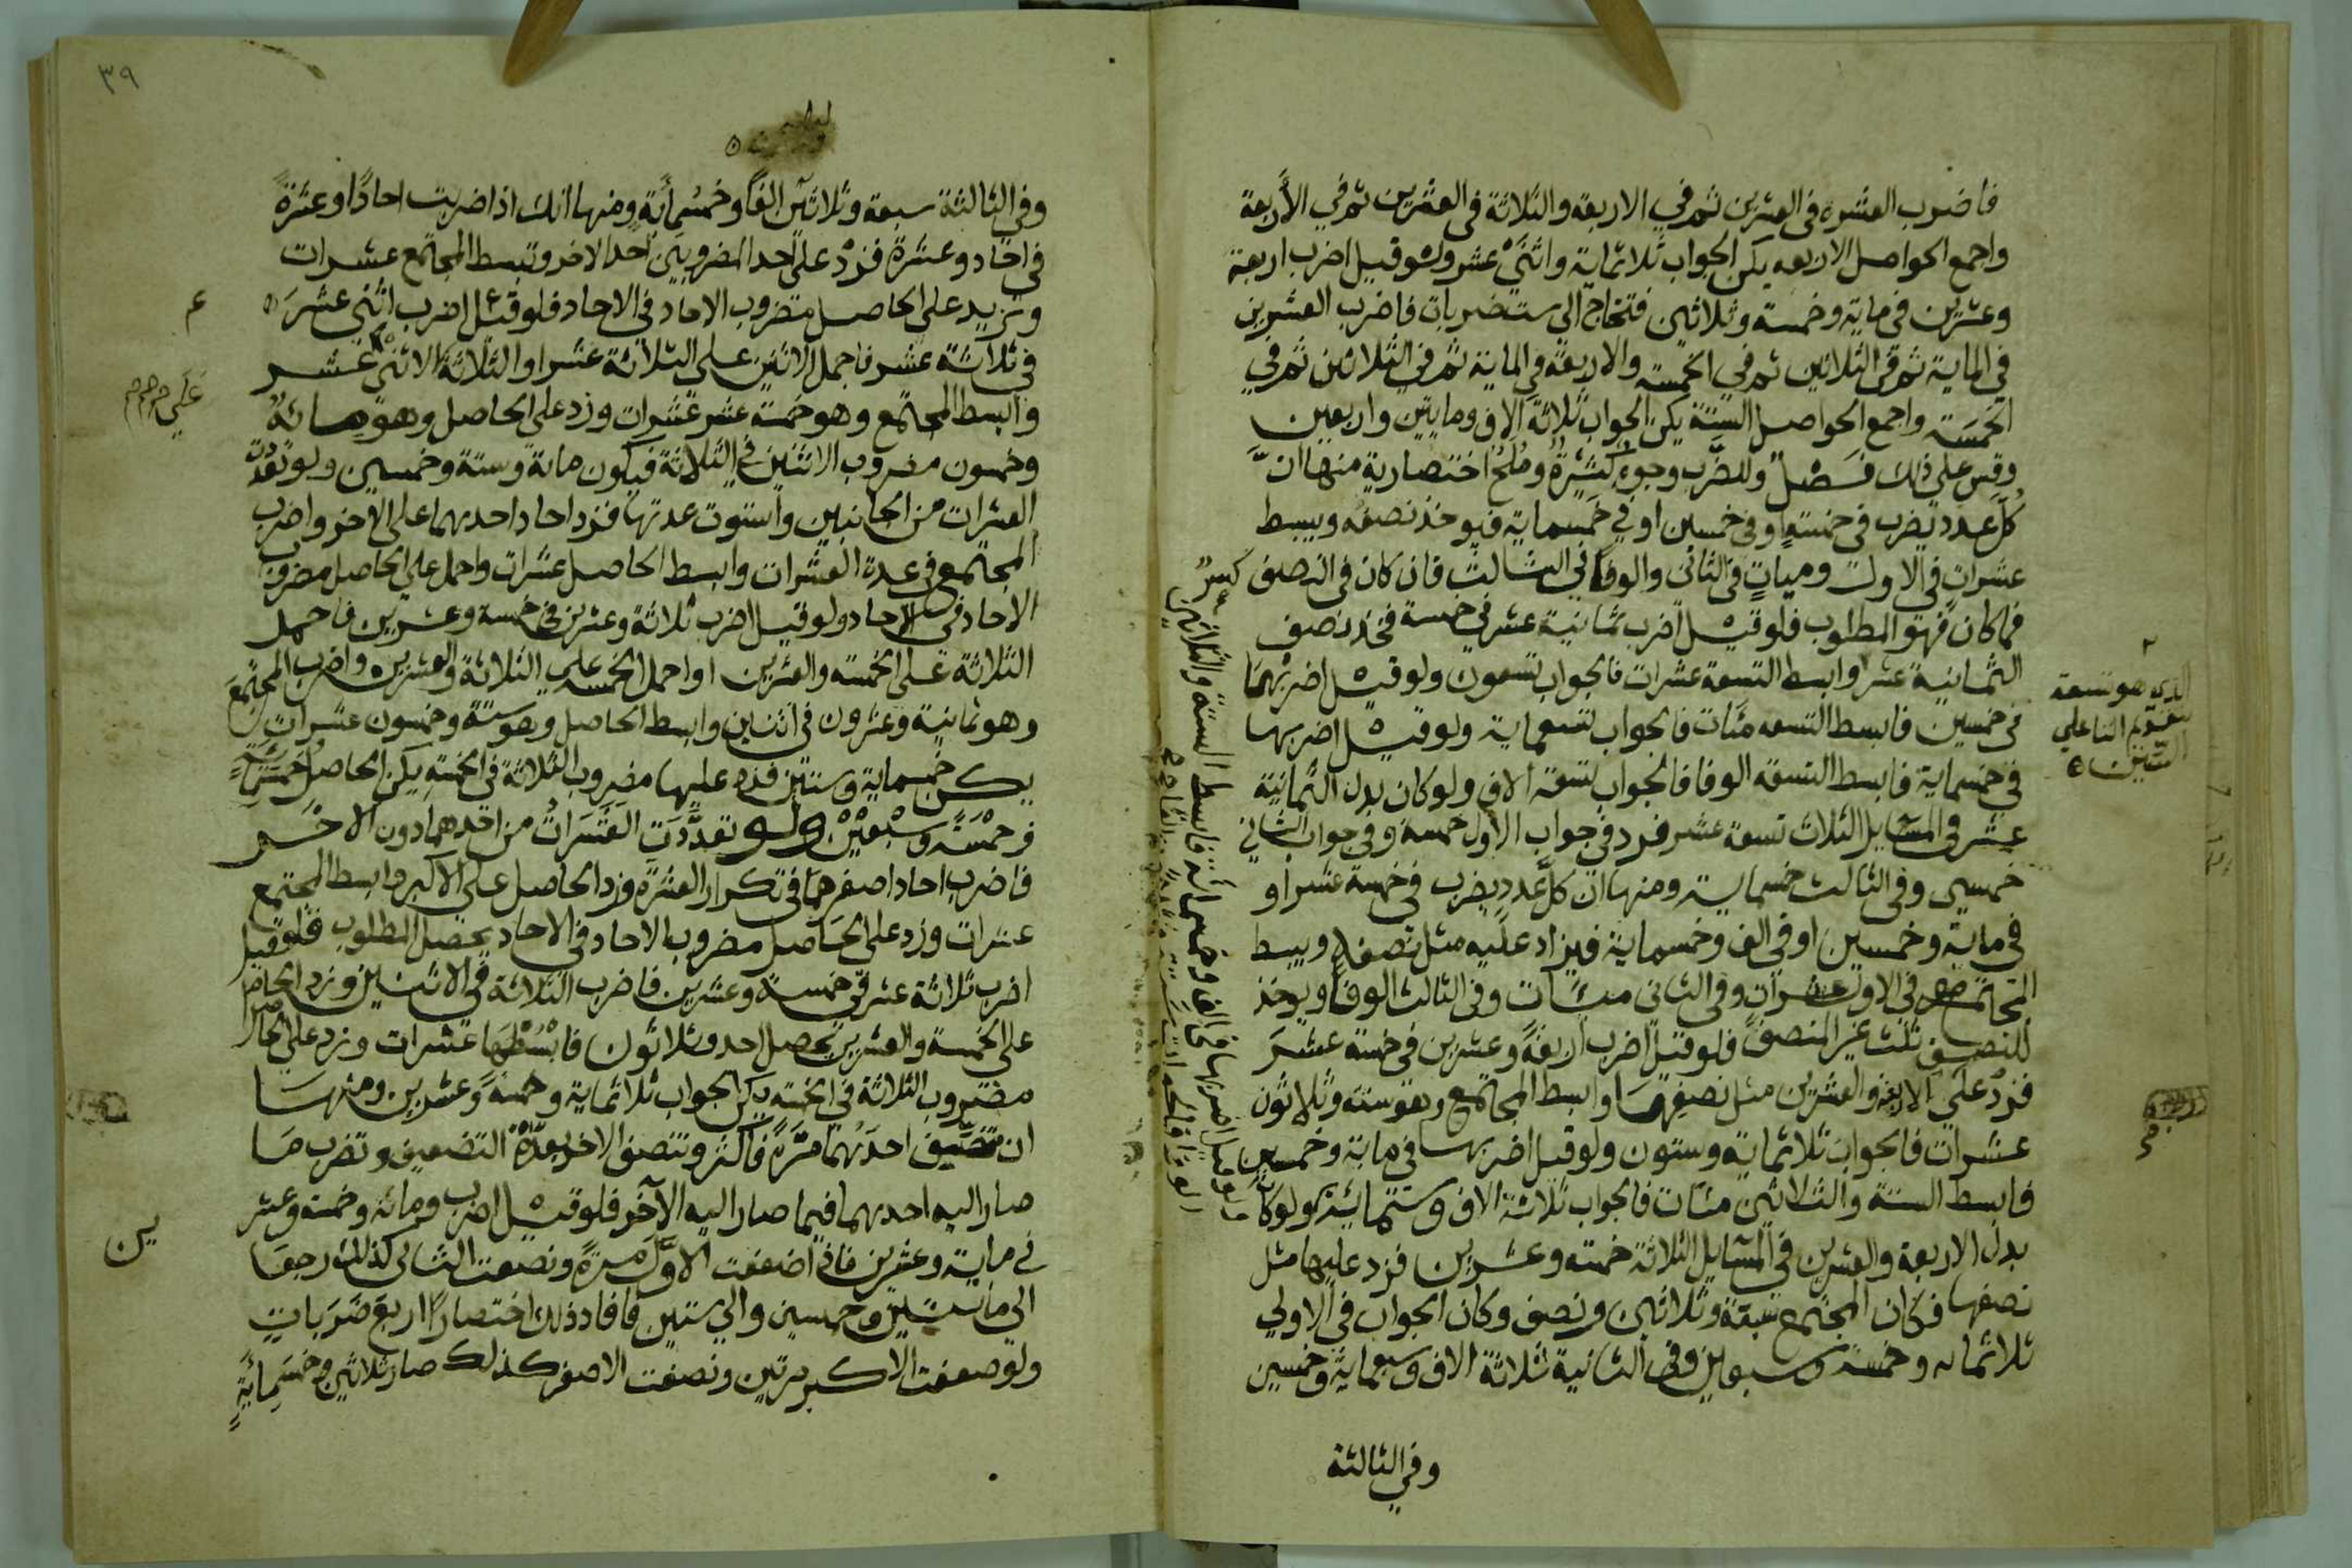 فاضرب العشرة فى العشرين ثم في الاربعة والثلاثة فى العشرين ثم في الأربعة
واجمع الحواصل الاربعه يكن الجواب ثلاثماية واثنَىْ عشر ولو قيل اضرب اربعة
وعشرين فى ماية وخمسة وثلاثين فتحتاج الى ست ضربات فاضرب العشرين
في الماية ثم فى الثلاثين ثم في الخمسة والاربعة في الماية ثم في الثلاثين ثم في
الخمسَة واجمع الحواصل الستة يكن الجواب ثلاثة آلاف ومايتين واربعين
وقِس على ذلك فَصْل وللضَّرب وجوهٌ كثيرةٌ ومُلَحٌ اختصارية منها انَّ
كُلَّ عدد يضرب فى خمسةٍ او فى خمسين او في خمسماية فيوخذ نصفُه ويبسط
عشرات في الاول وميات فى الثانى والوفًا في الثالث فان كان فى النصف كسرٌ
فما كان فهو المطلوب فلو قيل اضرب ثمانية عشر في خمسة فخذ نصف
الثمانية عشر وابسط التسعة عشرات فالجواب تسعون ولو قيل اضربهما
فى خمسين فابسط التسعه مئات فالجواب تسعماية ولو قيل اضربها
في خمسماية فابسط التسعة الوفا فالجواب تسعة آلاف ولو كان بدل الثمانية
عشر فى المسايل الثلاث تسعة عشر فزد في جواب الأول خمسة وفى جواب الثاني
خمسين وفى الثالث خمسماية ومنها انّ كلَّ عددٍ يضرب في خمسة عشر او
في ماية وخمسين او فى الف وخمسماية فيزاد عليه مثل نصفهِ ويبسط
المجتمع فى الاول عشرات وفى الثانى مئات وفى الثالث الوفًا ويوخذ
للنصف ثلث غير المنصف فلو قيل اضرب أربعةً وعشرين فى خمسة عشرَ
فزدْ على الاربعة والعشرين مثل نصفها وابسط المجتمع وهو ستة وثلاثون
عشرات فالجواب ثلاثماية وستون ولو قيل اضربها في ماية وخمسين
فابسط الستة والثلاثين مئات فالجواب ثلاثة الاف وستمائة ولو كان
بدل الاربعة والعشرين في المسايل الثلاثة خمسة وعشرين فزد عليها مثل
نصفها فكان المجتمع سبعة وثلاثين ونصف وكان الجواب في الاولي
ثلاثمايه وخمسة وسبعين وفى الثانية ثلاثة الاف وسبعماية وخمسين
وفي الثالثة
الذى هو تسعة
فابسط الستة والثلاثين
٣٩
وفى الثالثة سبعة وثلاثين الفًا وخمسمِأية ومنها انك اذا ضربت احادًا وعشرةً
في احاد وعشرة فزدْ على احد المضروبين احاد الاخر وتبسط المجتمع عشرات
وتزيد على الحاصل مضروب الاحاد في الاحاد فلو قيل اضرب اثنى عشرَ
فى ثلاثة عشر فاجمل الاثنين على الثلاثة عشر او الثلاثة على الاثنى عشر
وابسط المجتمع وهو خمسة عشر عشرات وزد على الحاصل وهو مائة
وخمسون مضروب الاثنين في الثلاثة فيكون ماية وستة وخمسين ولو تعدّدت
العشرات من الجانبين واستوت عدتها فزد احاد احدهما على الآخر واضرب
المجتمع فى عدة العشرات وابسط الحاصل عشرات واحمل على الحاصل مضروب
الاحاد فى الاحاد ولو قيل اضرب ثلاثة وعشرين فى خمسة وعشرين فاحمل
الثلاثة على الخمسة والعشرين او احمل الخمسة على الثلاثة والعشرين واضرب المجتمعَ
وهو ثمانية وعشرون فى اثنين وابسط الحاصل وهو ستة وخمسون عشرات
يكن خمسماية وستين فزد عليها مضروب الثلاثة فى الخمسة يكن الحاصل
وخمْسَةً وسَبْعِيْنَ ولو تعدَّدَت العَشَرَاتُ من احدهما دون الاخر
فاضرب احاد اصغرهما في تكرار العشرة وزد الحاصل على الاكبر وابسط المجتمع
عشرات وزد على الحاصل مضروب الاحاد فى الاحاد يحصل المطلوب فلو قيل
اضرب ثلاثة عشر فى خمسة وعشرين فاضرب الثلاثة في الاثنين وزد الحاصل
على الخمسة والعشرين يحصل احد وثلاثون فابْسُطْهَا عشرات وزد على الحاصل
مضروب الثلاثة في الخمسة يكن الجواب ثلاثماية وخمسةً وعشرين ومنها
ان تضعِّف احدَهُما مرَّةً فأكثر وتنصف الاخر بعدّة التضعيف وتضرب مَا
صار اليه احدهما فيما صار اليه الآخر فلو قيل اضرب ومائة وخمسة وعشر
في ماية وعشرين فاذا ضعفت الاوَّل مرةً ونصفت الثانى كذلك رجعَا
الى مأتين وخمسين والي ستين فافاد ذلك اختصارًا اربعَ ضَرَباتٍ
ولو ضعفت الاكبر مرتين ونصفت الاصغر كذلك صار ثلاثين وخمسَمِائةٍ
ين